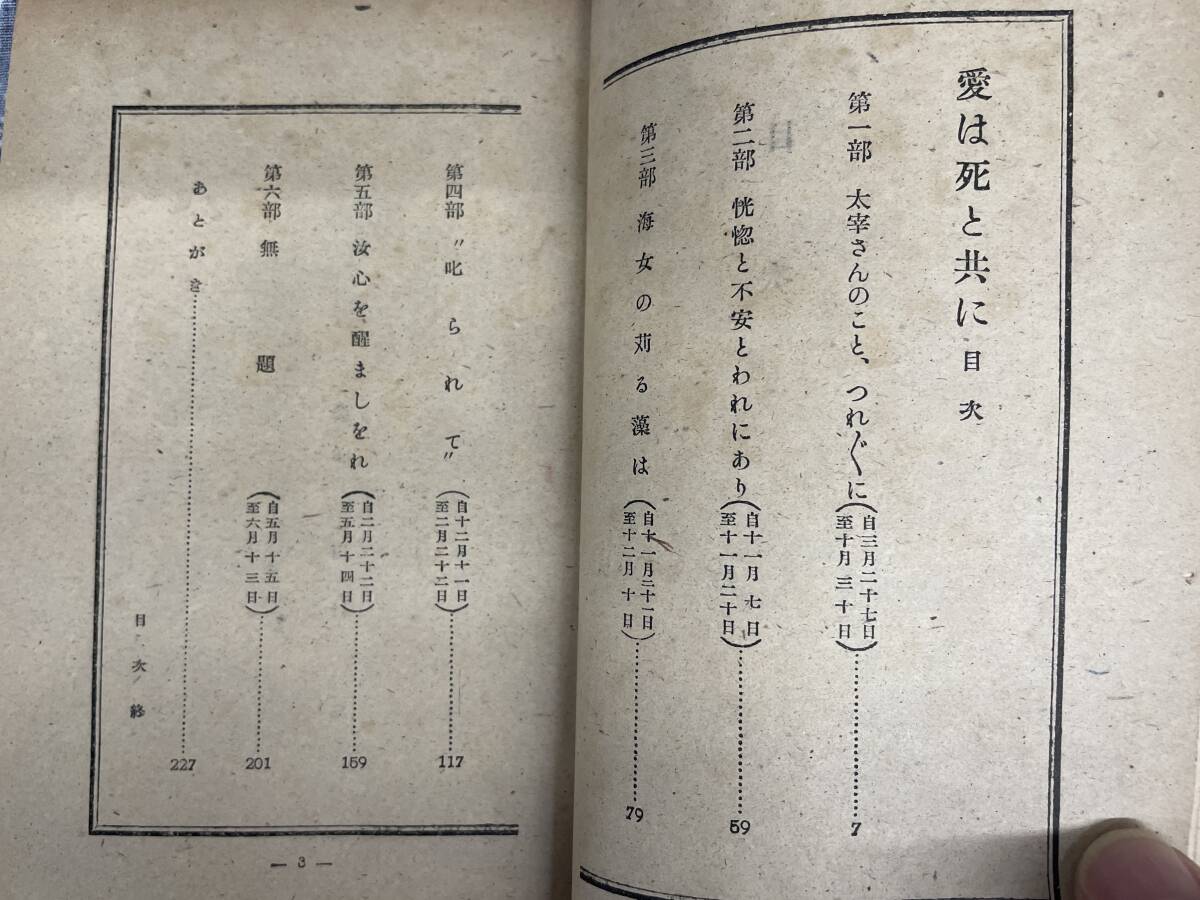 愛は死と共に 目次
第一部 太宰さんのこと、つれ〴〵に(自三月二十七日 至十月三十日)………7
第二部 恍惚と不安とわれにあり(自十一月七日 至十一月二十日)………59
第三部 海女の苅る藻は(自十一月二十一日 至十二月十日)………79
第四部 〝叱られて〟(自十二月十一日 至二月二十二日)………117
第五部 汝心を醒ましをれ(自二月二十二日 至五月十四日)………159
第六部 無題(自五月十五日 至六月十三日)………201
あとがき………227
目次終
— 3 —